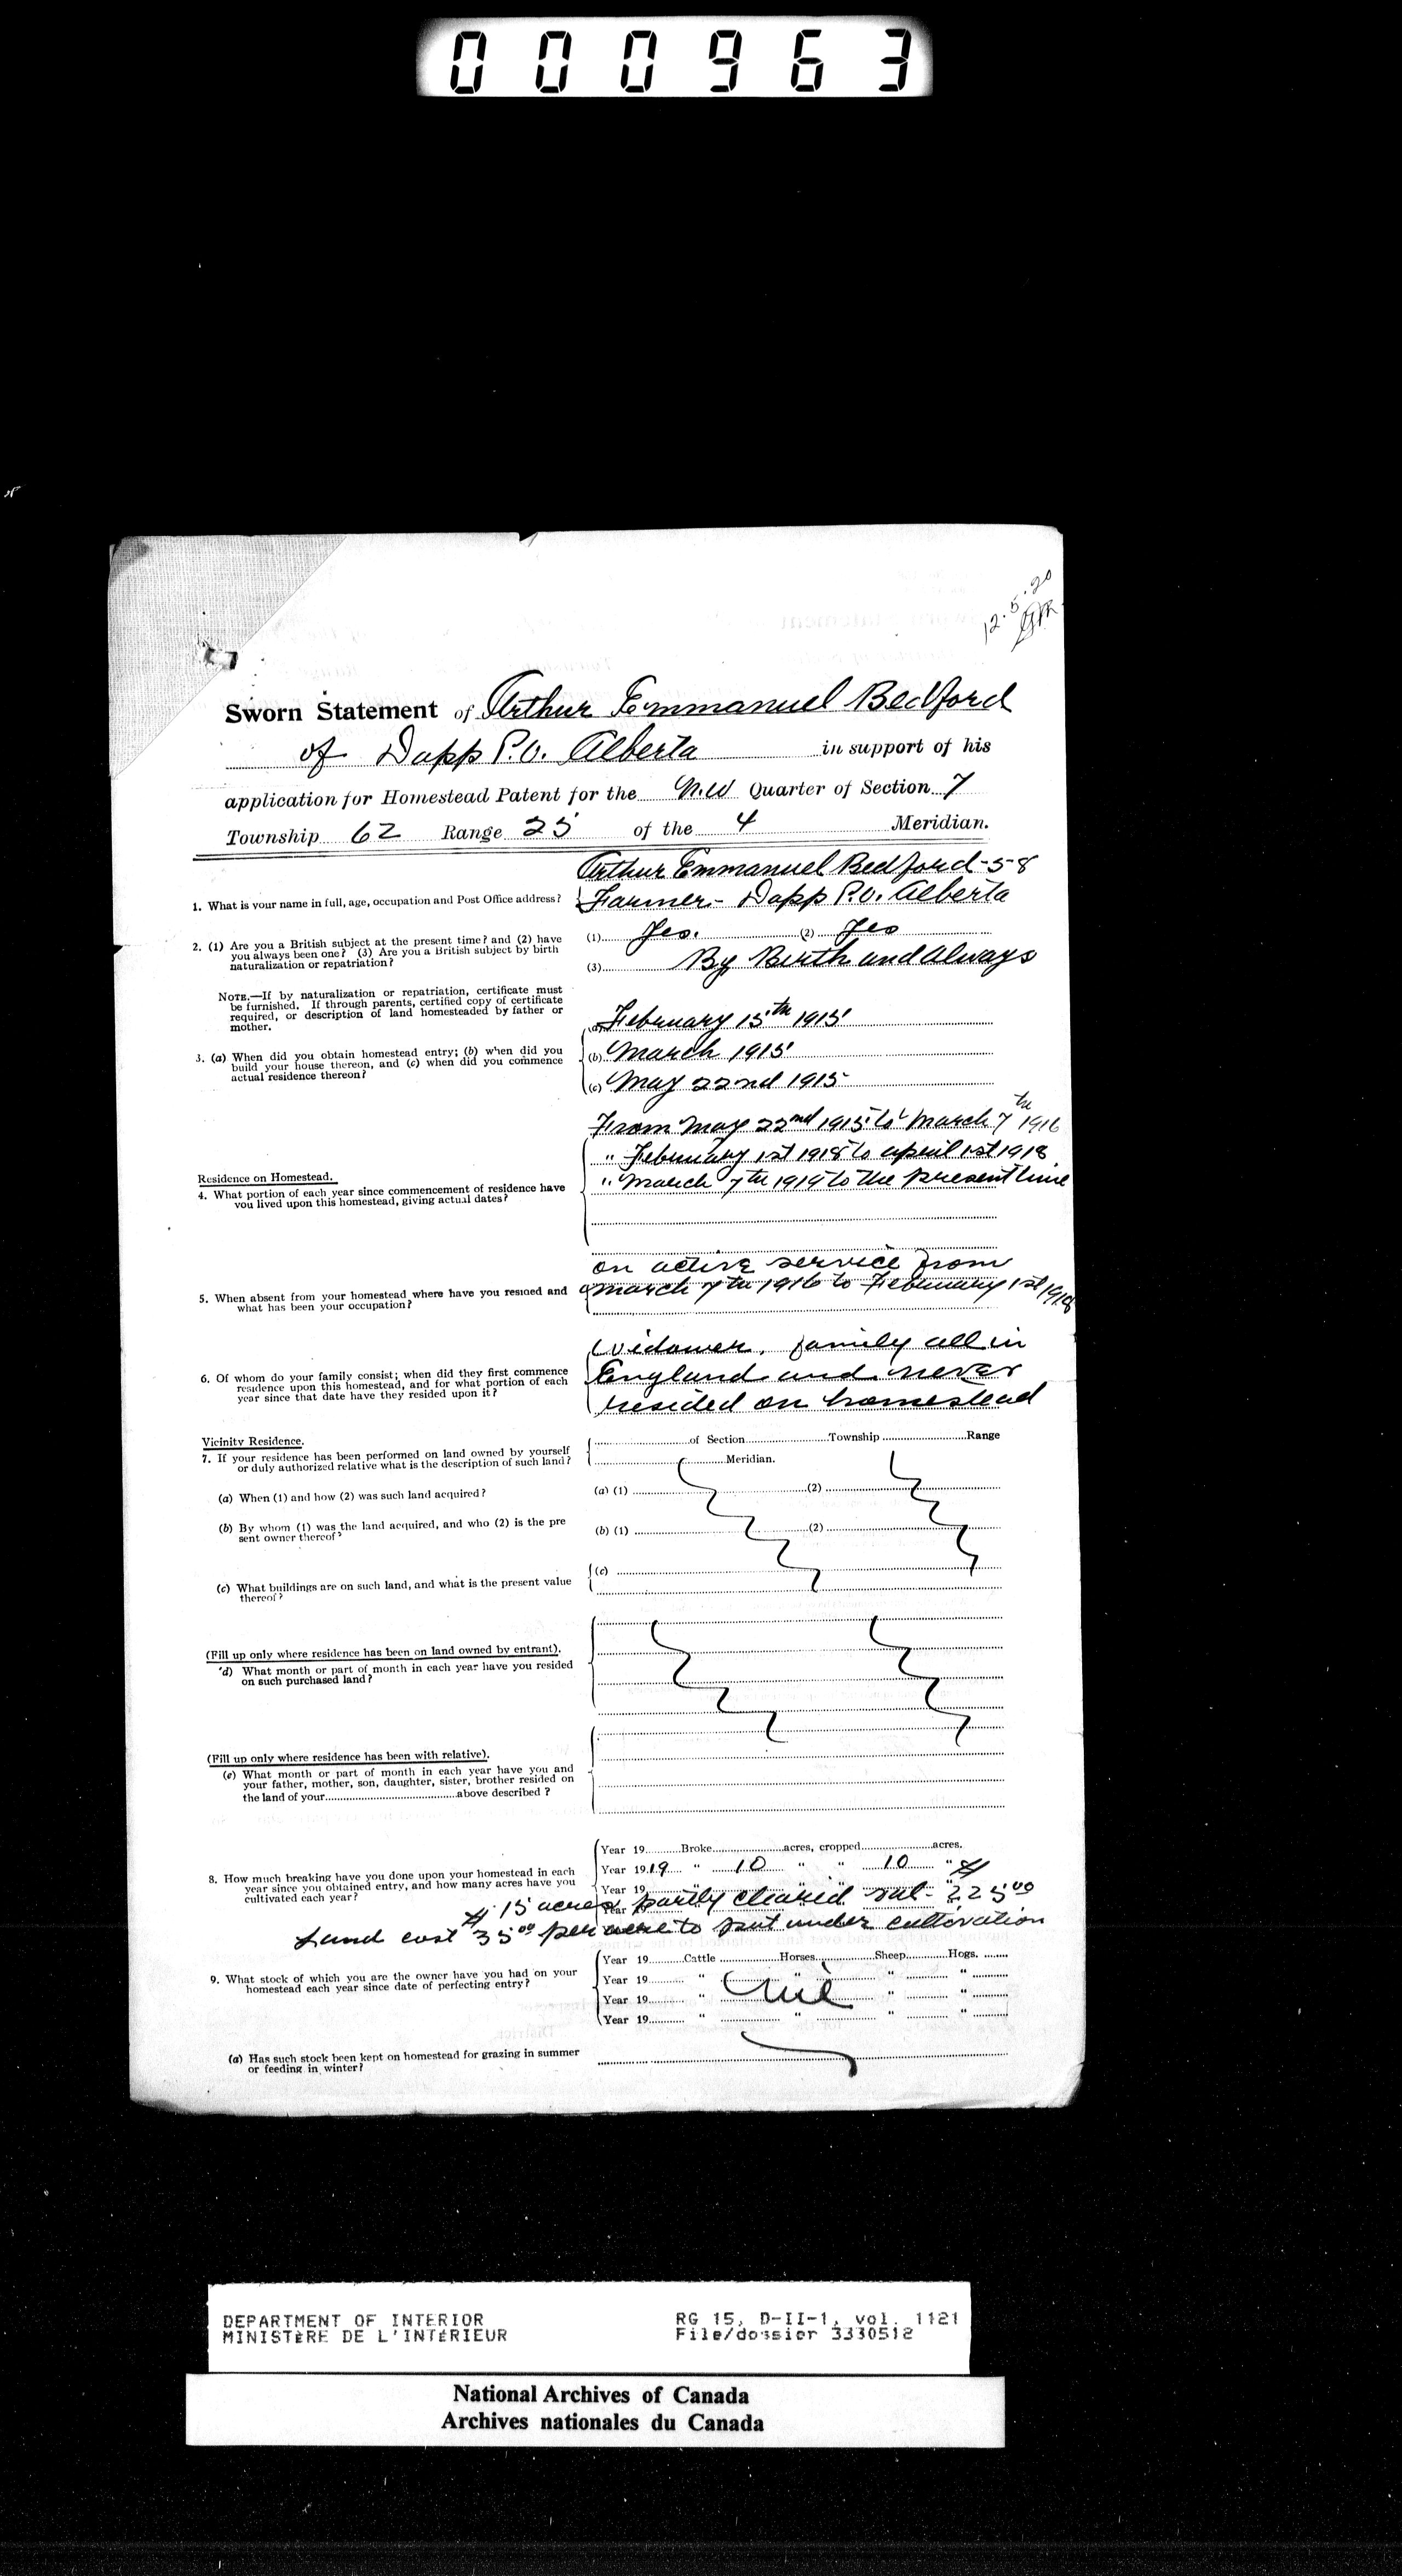 000963
12.5.20
Sworn Statement of Arthur Emmanuel Bedford
of Dapp P.O. Alberta in support of his
application for Homestead Patent for the N.W Quarter of Section 7
Township 62 Range 25 of the 4 Meridian.
Arthur Emmanuel Bedford - 58
1. What is your name in full, age, occupation and Post Office address? Farmer - Dapp P.O. Alberta
2. (1) Are you a British subject at the present time? and (2) have (1) Yes. (2) Yes
you always been one? (3) Are you a British subject by birth
naturalization or repatriation? (3) By Birth and Always
NOTE.—If by naturalization or repatriation, certificate must
be furnished. If through parents, certified copy of certificate
required, or description of land homesteaded by father or
mother.
(a) February 15th 1915
3. (a) When did you obtain homestead entry; (b) when did you (b) March 1915
build your house thereon, and (c) when did you commence
actual residence thereon? (c) May 22nd 1915
From May 22nd 1915 to March 7th 1916
" February 1st 1918 to April 1st 1918
Residence on Homestead. " March 7th 1919 to the present time
4. What portion of each year since commencement of residence have
you lived upon this homestead, giving actual dates?
on active service from
5. When absent from your homestead where have you resided and March 7th 1916 to February 1st 1918
what has been your occupation?
Widower, family all in
6. Of whom do your family consist; when did they first commence England and never
residence upon this homestead, and for what portion of each
year since that date have they resided upon it? resided on homestead
Vicinity Residence. of Section Township Range
7. If your residence has been performed on land owned by yourself
or duly authorized relative what is the description of such land? Meridian.
(a) When (1) and how (2) was such land acquired? (a) (1) (2)
(b) By whom (1) was the land acquired, and who (2) is the pre (b) (1) (2)
sent owner thereof?
(c)
(c) What buildings are on such land, and what is the present value
thereof?
(Fill up only where residence has been on land owned by entrant).
(d) What month or part of month in each year have you resided
on such purchased land?
(Fill up only where residence has been with relative).
(e) What month or part of month in each year have you and
your father, mother, son, daughter, sister, brother resided on
the land of your above described ?
Year 19 Broke acres, cropped acres.
8. How much breaking have you done upon your homestead in each Year 1919 " 10 " " 10 "
year since you obtained entry, and how many acres have you
cultivated each year? Year 19
15 acres partly cleared val - 225.00
Land cost 35.00 per acre to put under cultivation
Year 19 Cattle Horses Sheep Hogs.
9. What stock of which you are the owner have you had on your Year 19 " " " "
homestead each year since date of perfecting entry?
Year 19 " Nil " "
Year 19 " " " "
(a) Has such stock been kept on homestead for grazing in summer
or feeding in winter?
DEPARTMENT OF INTERIOR RG 15, D-II-1, vol. 1121
MINISTÈRE DE L'INTÉRIEUR File/dossier 3330512
National Archives of Canada
Archives nationales du Canada